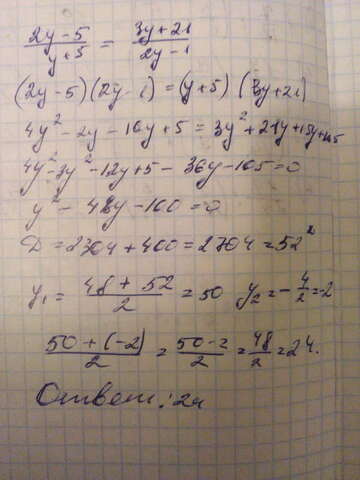 (2y-5)/(y+5) = (3y+21)/(2y-1)
(2y-5)(2y-1) = (y+5)(3y+21)
4y²-2y-10y+5 = 3y²+21y+15y+105
4y²-3y²-12y+5-36y-105=0
y²-48y-100=0
D=2304+400=2704=52²
y₁= (48+52)/2 =50 y₂=-4/2=-2
(50+(-2))/2 = (50-2)/2 = 48/2 =24.
Ответ: 24